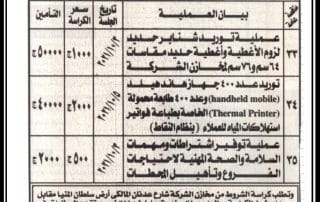 بيان العملية
تاريخ الجلسة
سعر الكراسة
التأمين
٣٣
عملية توريد شنابر حديد
لزوم الأغطية وأغطية حديد مقاسات
٦٤سم و٧٦سم لمخازن الشركة
١٠٠٠ج
٥٠٠٠٠ج
٣٤
توريد عدد ٤٠٠ جهاز هاند هيلد
(handheld mobile) وعدد ٤٠٠ طابعة محمولة
(Thermal Printer) الخاصة بطباعة فواتير
استهلاكات المياه للعملاء (بنظام النقاط)
٢٠٠٠ج
٤٠٠٠٠ج
٣٥
عملية توفير اشتراطات ومهمات
السلامة والصحة المهنية لاحتياجات
الفروع وتأهيل المحطات
٥٠٠ج
٢٠٠٠ج
وتطلب كراسة الشروط من مخازن الشركة شارع عدنان المالكي أرض سلطان المنيا مقابل